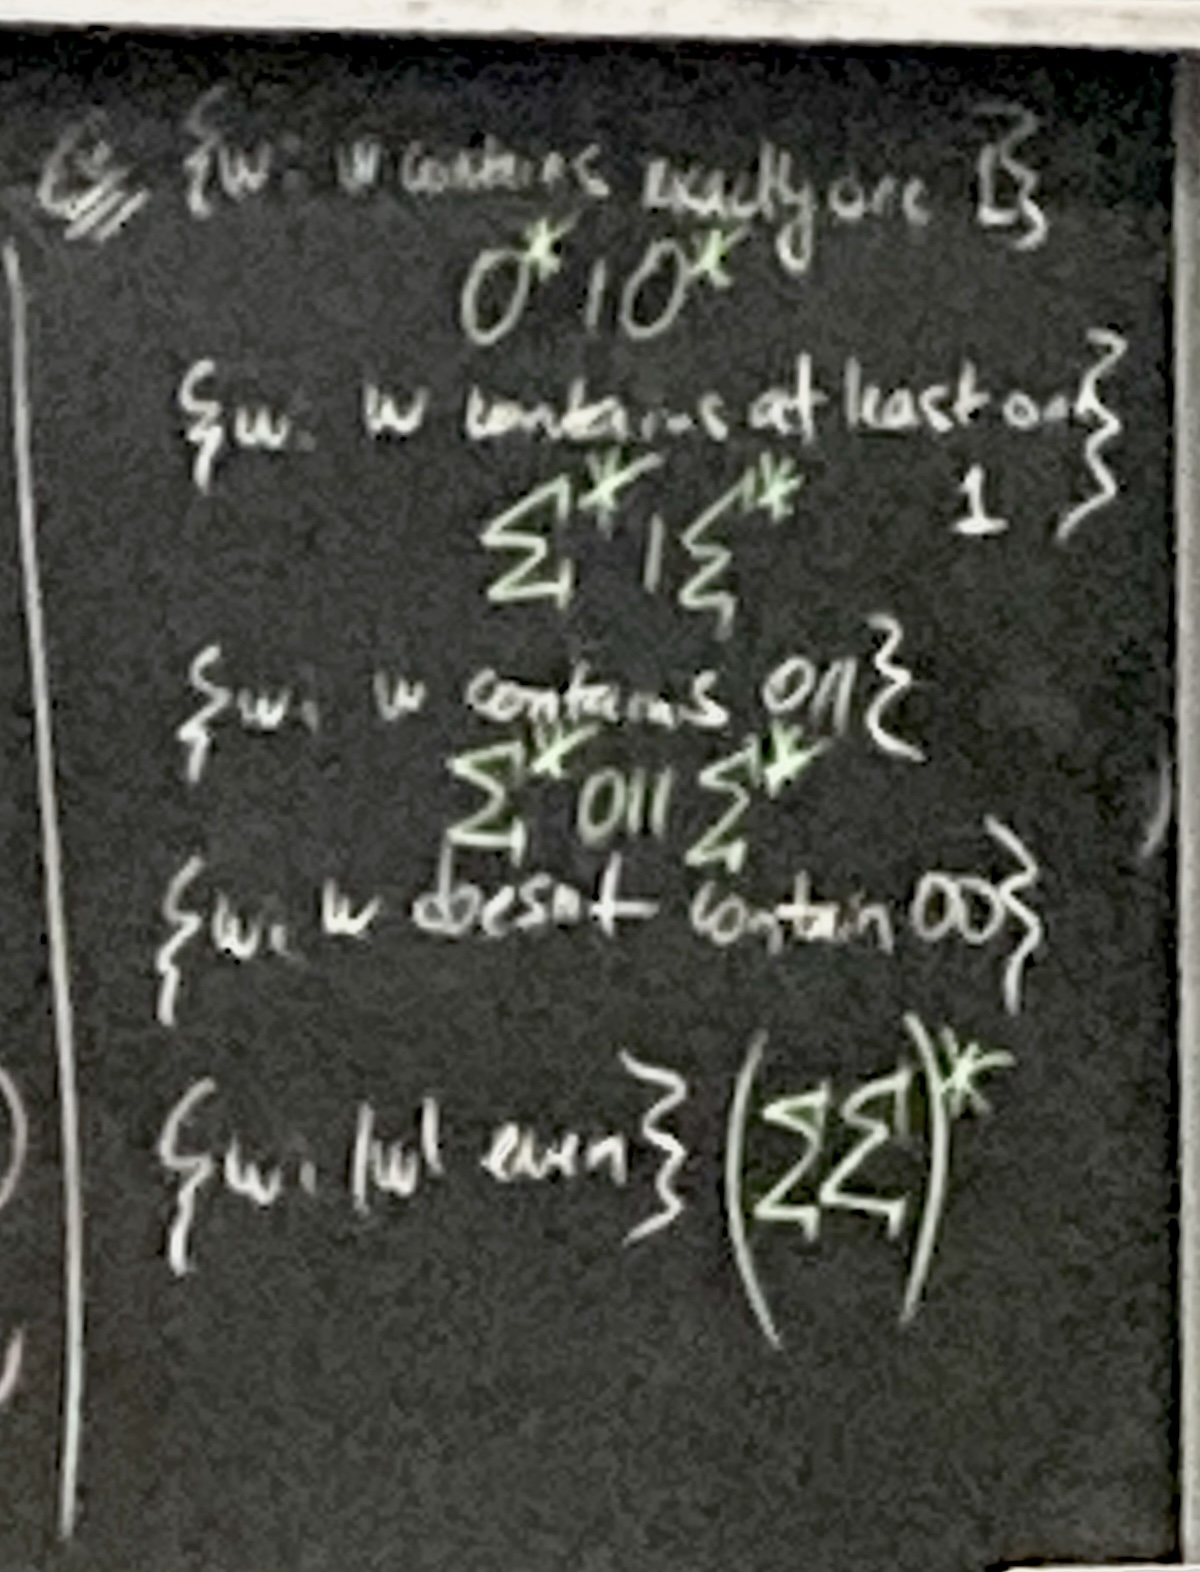 eg {w: w contains exactly one 1}
0*10*
{w: w contains at least one
1}
Σ*1Σ*
{w: w contains 011}
Σ*011Σ*
{w: w doesn't contain 00}
{w: |w| even} (ΣΣ)*